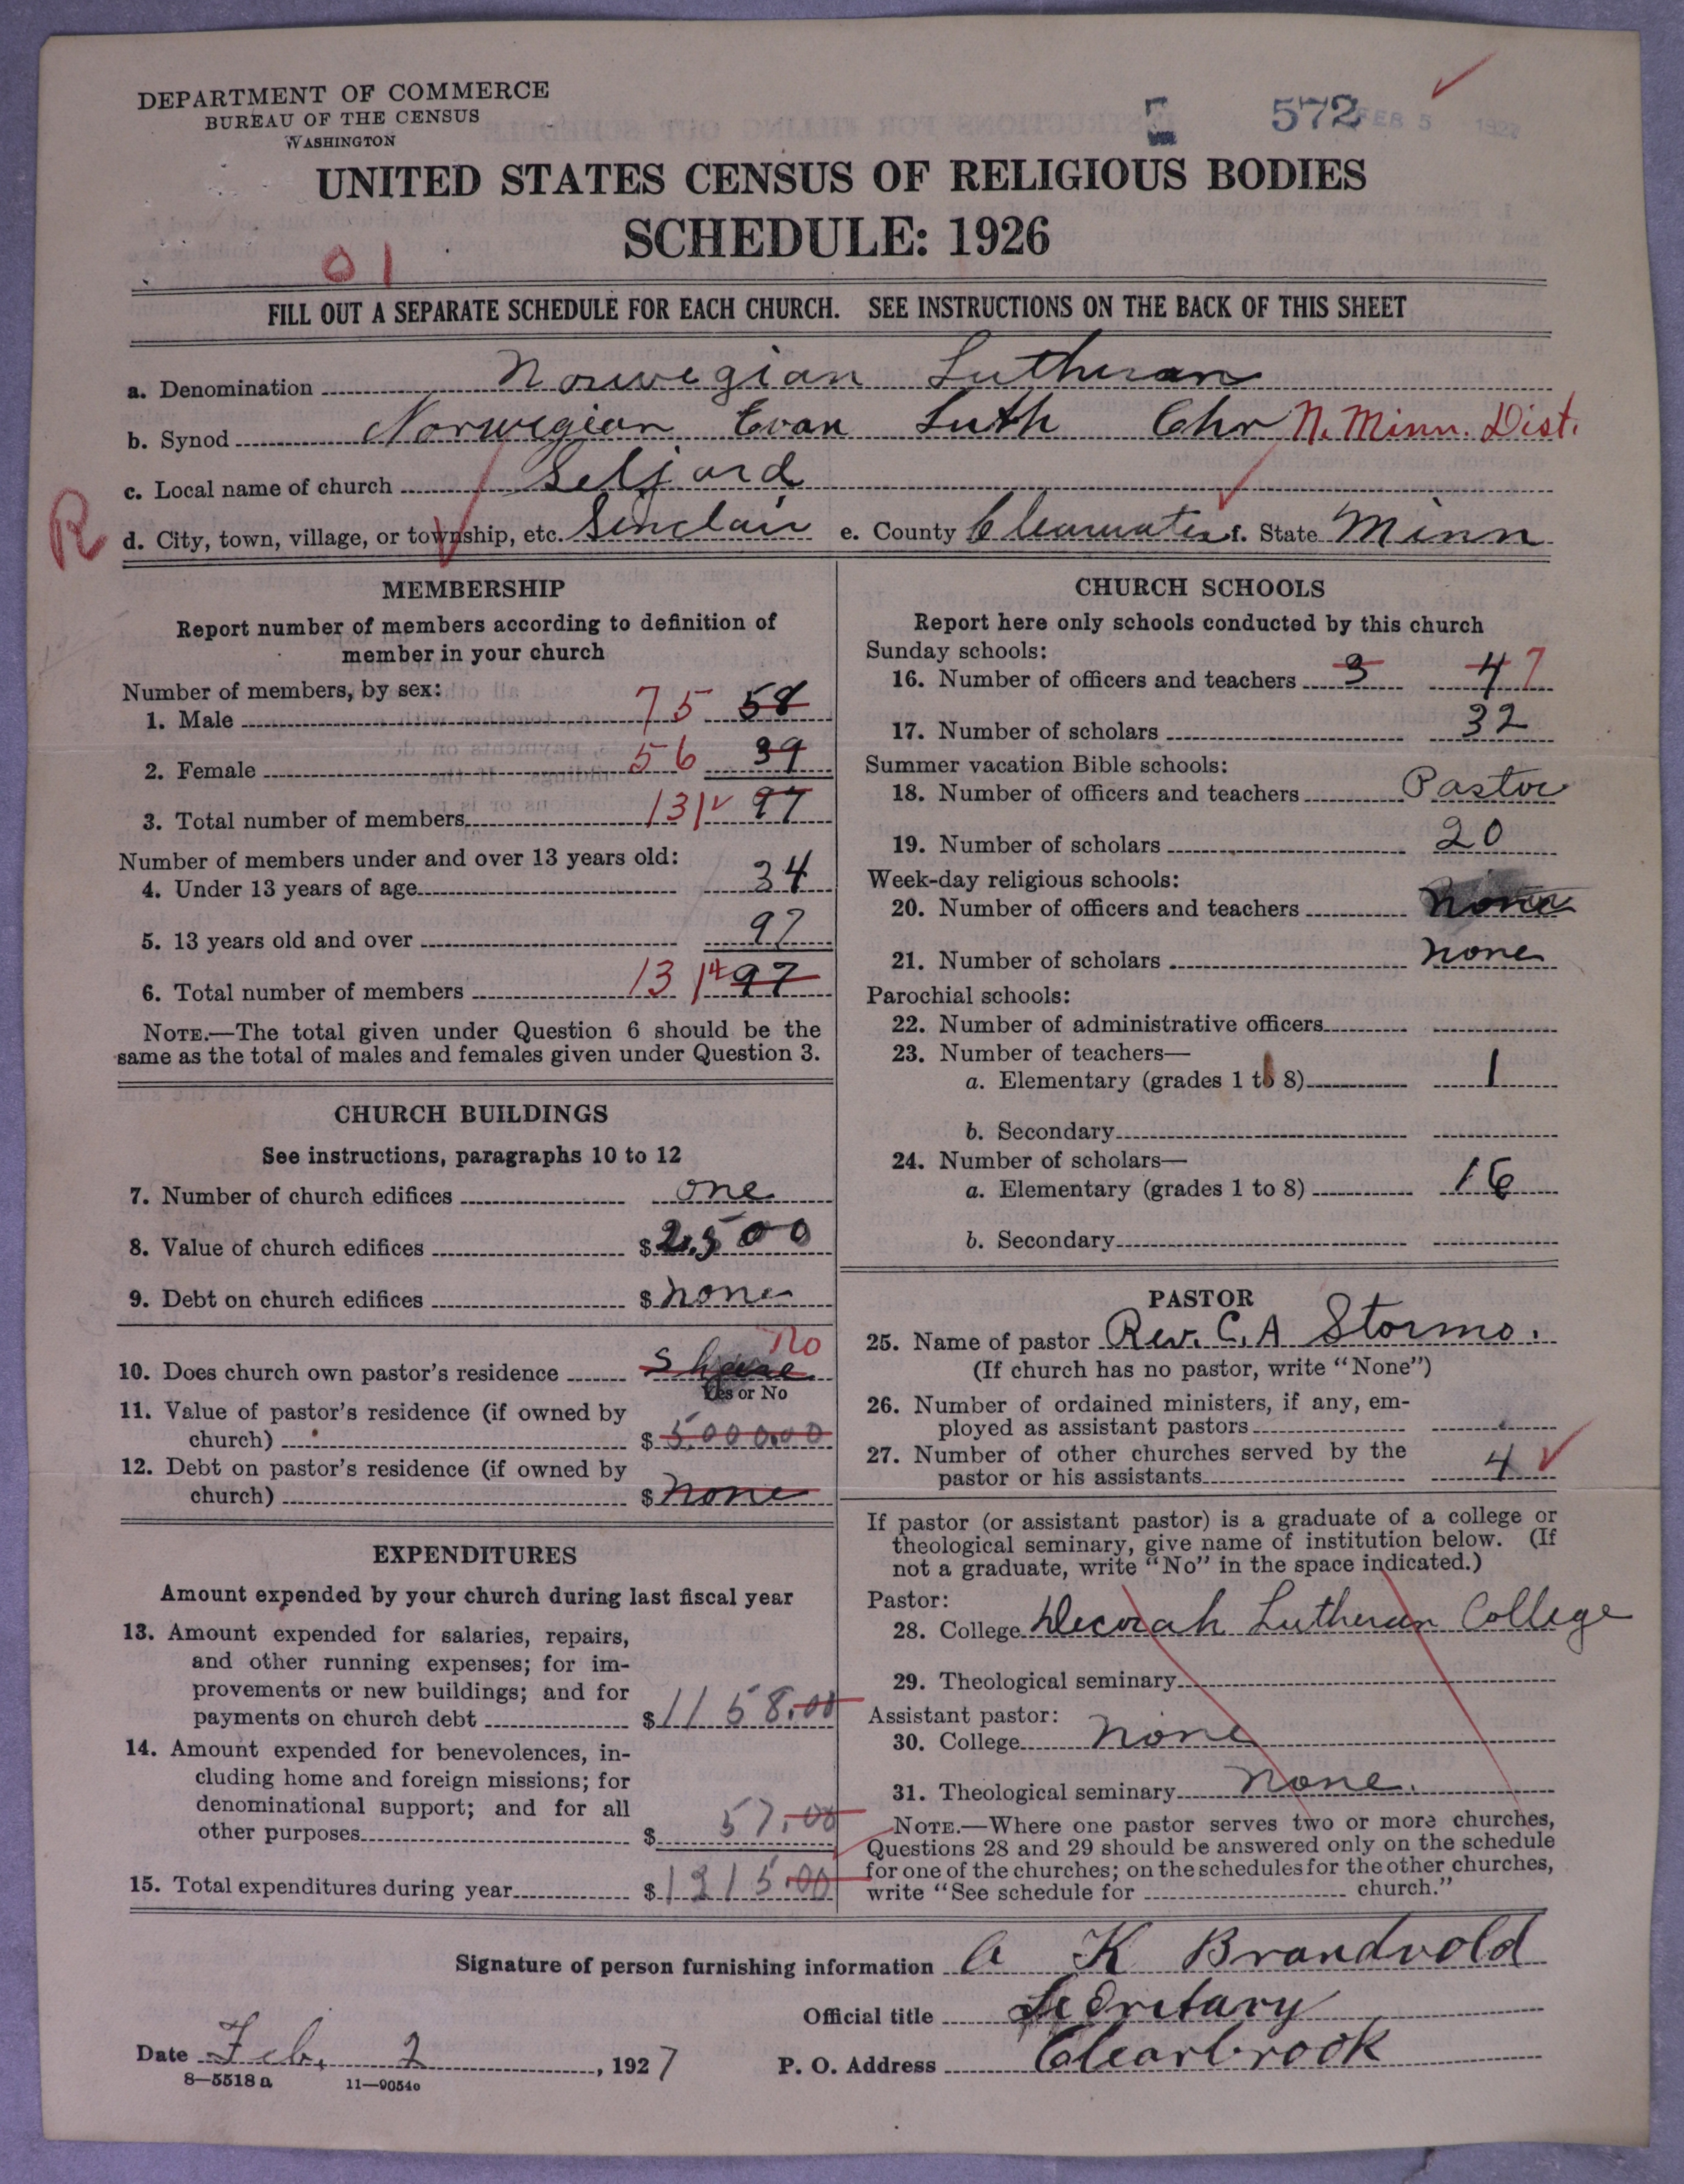 DEPARTMENT OF COMMERCE
BUREAU OF THE CENSUS
WASHINGTON
572 FEB 5 1927
UNITED STATES CENSUS OF RELIGIOUS BODIES
SCHEDULE: 1926
01
FILL OUT A SEPARATE SCHEDULE FOR EACH CHURCH. SEE INSTRUCTIONS ON THE BACK OF THIS SHEET
a. Denomination Norwegian Lutheran
b. Synod Norwegian Evan Luth Chr N. Minn. Dist.
c. Local name of church Seljord
R
d. City, town, village, or township, etc. Sinclair e. County Clearwater f. State Minn
MEMBERSHIP
Report number of members according to definition of
member in your church
Number of members, by sex:
1. Male 75 58
2. Female 56 39
3. Total number of members 131 97
Number of members under and over 13 years old:
4. Under 13 years of age 34
5. 13 years old and over 97
6. Total number of members 131 97
NOTE.—The total given under Question 6 should be the
same as the total of males and females given under Question 3.
CHURCH BUILDINGS
See instructions, paragraphs 10 to 12
7. Number of church edifices one
8. Value of church edifices $ 2,500
9. Debt on church edifices $ none
10. Does church own pastor's residence Share No
Yes or No
11. Value of pastor's residence (if owned by
church) $ 5,000.00
12. Debt on pastor's residence (if owned by
church) $ none
EXPENDITURES
Amount expended by your church during last fiscal year
13. Amount expended for salaries, repairs,
and other running expenses; for im-
provements or new buildings; and for
payments on church debt $ 1158.00
14. Amount expended for benevolences, in-
cluding home and foreign missions; for
denominational support; and for all
other purposes $ 57.00
15. Total expenditures during year $ 1215.00
CHURCH SCHOOLS
Report here only schools conducted by this church
Sunday schools:
16. Number of officers and teachers 3 4 7
17. Number of scholars 32
Summer vacation Bible schools:
18. Number of officers and teachers Pastor
19. Number of scholars 20
Week-day religious schools:
20. Number of officers and teachers none
21. Number of scholars none
Parochial schools:
22. Number of administrative officers
23. Number of teachers—
a. Elementary (grades 1 to 8) 1
b. Secondary
24. Number of scholars—
a. Elementary (grades 1 to 8) 16
b. Secondary
PASTOR
25. Name of pastor Rev. C. A Stormo.
(If church has no pastor, write "None")
26. Number of ordained ministers, if any, em-
ployed as assistant pastors
27. Number of other churches served by the
pastor or his assistants 4
If pastor (or assistant pastor) is a graduate of a college or
theological seminary, give name of institution below. (If
not a graduate, write "No" in the space indicated.)
Pastor:
28. College Decorah Lutheran College
29. Theological seminary
Assistant pastor:
30. College none
31. Theological seminary none.
NOTE.—Where one pastor serves two or more churches,
Questions 28 and 29 should be answered only on the schedule
for one of the churches; on the schedules for the other churches,
write "See schedule for church."
Signature of person furnishing information A K Brandvold
Official title Secretary
Date Feb. 2, 1927 P. O. Address Clearbrook
8—5518a 11—9054o